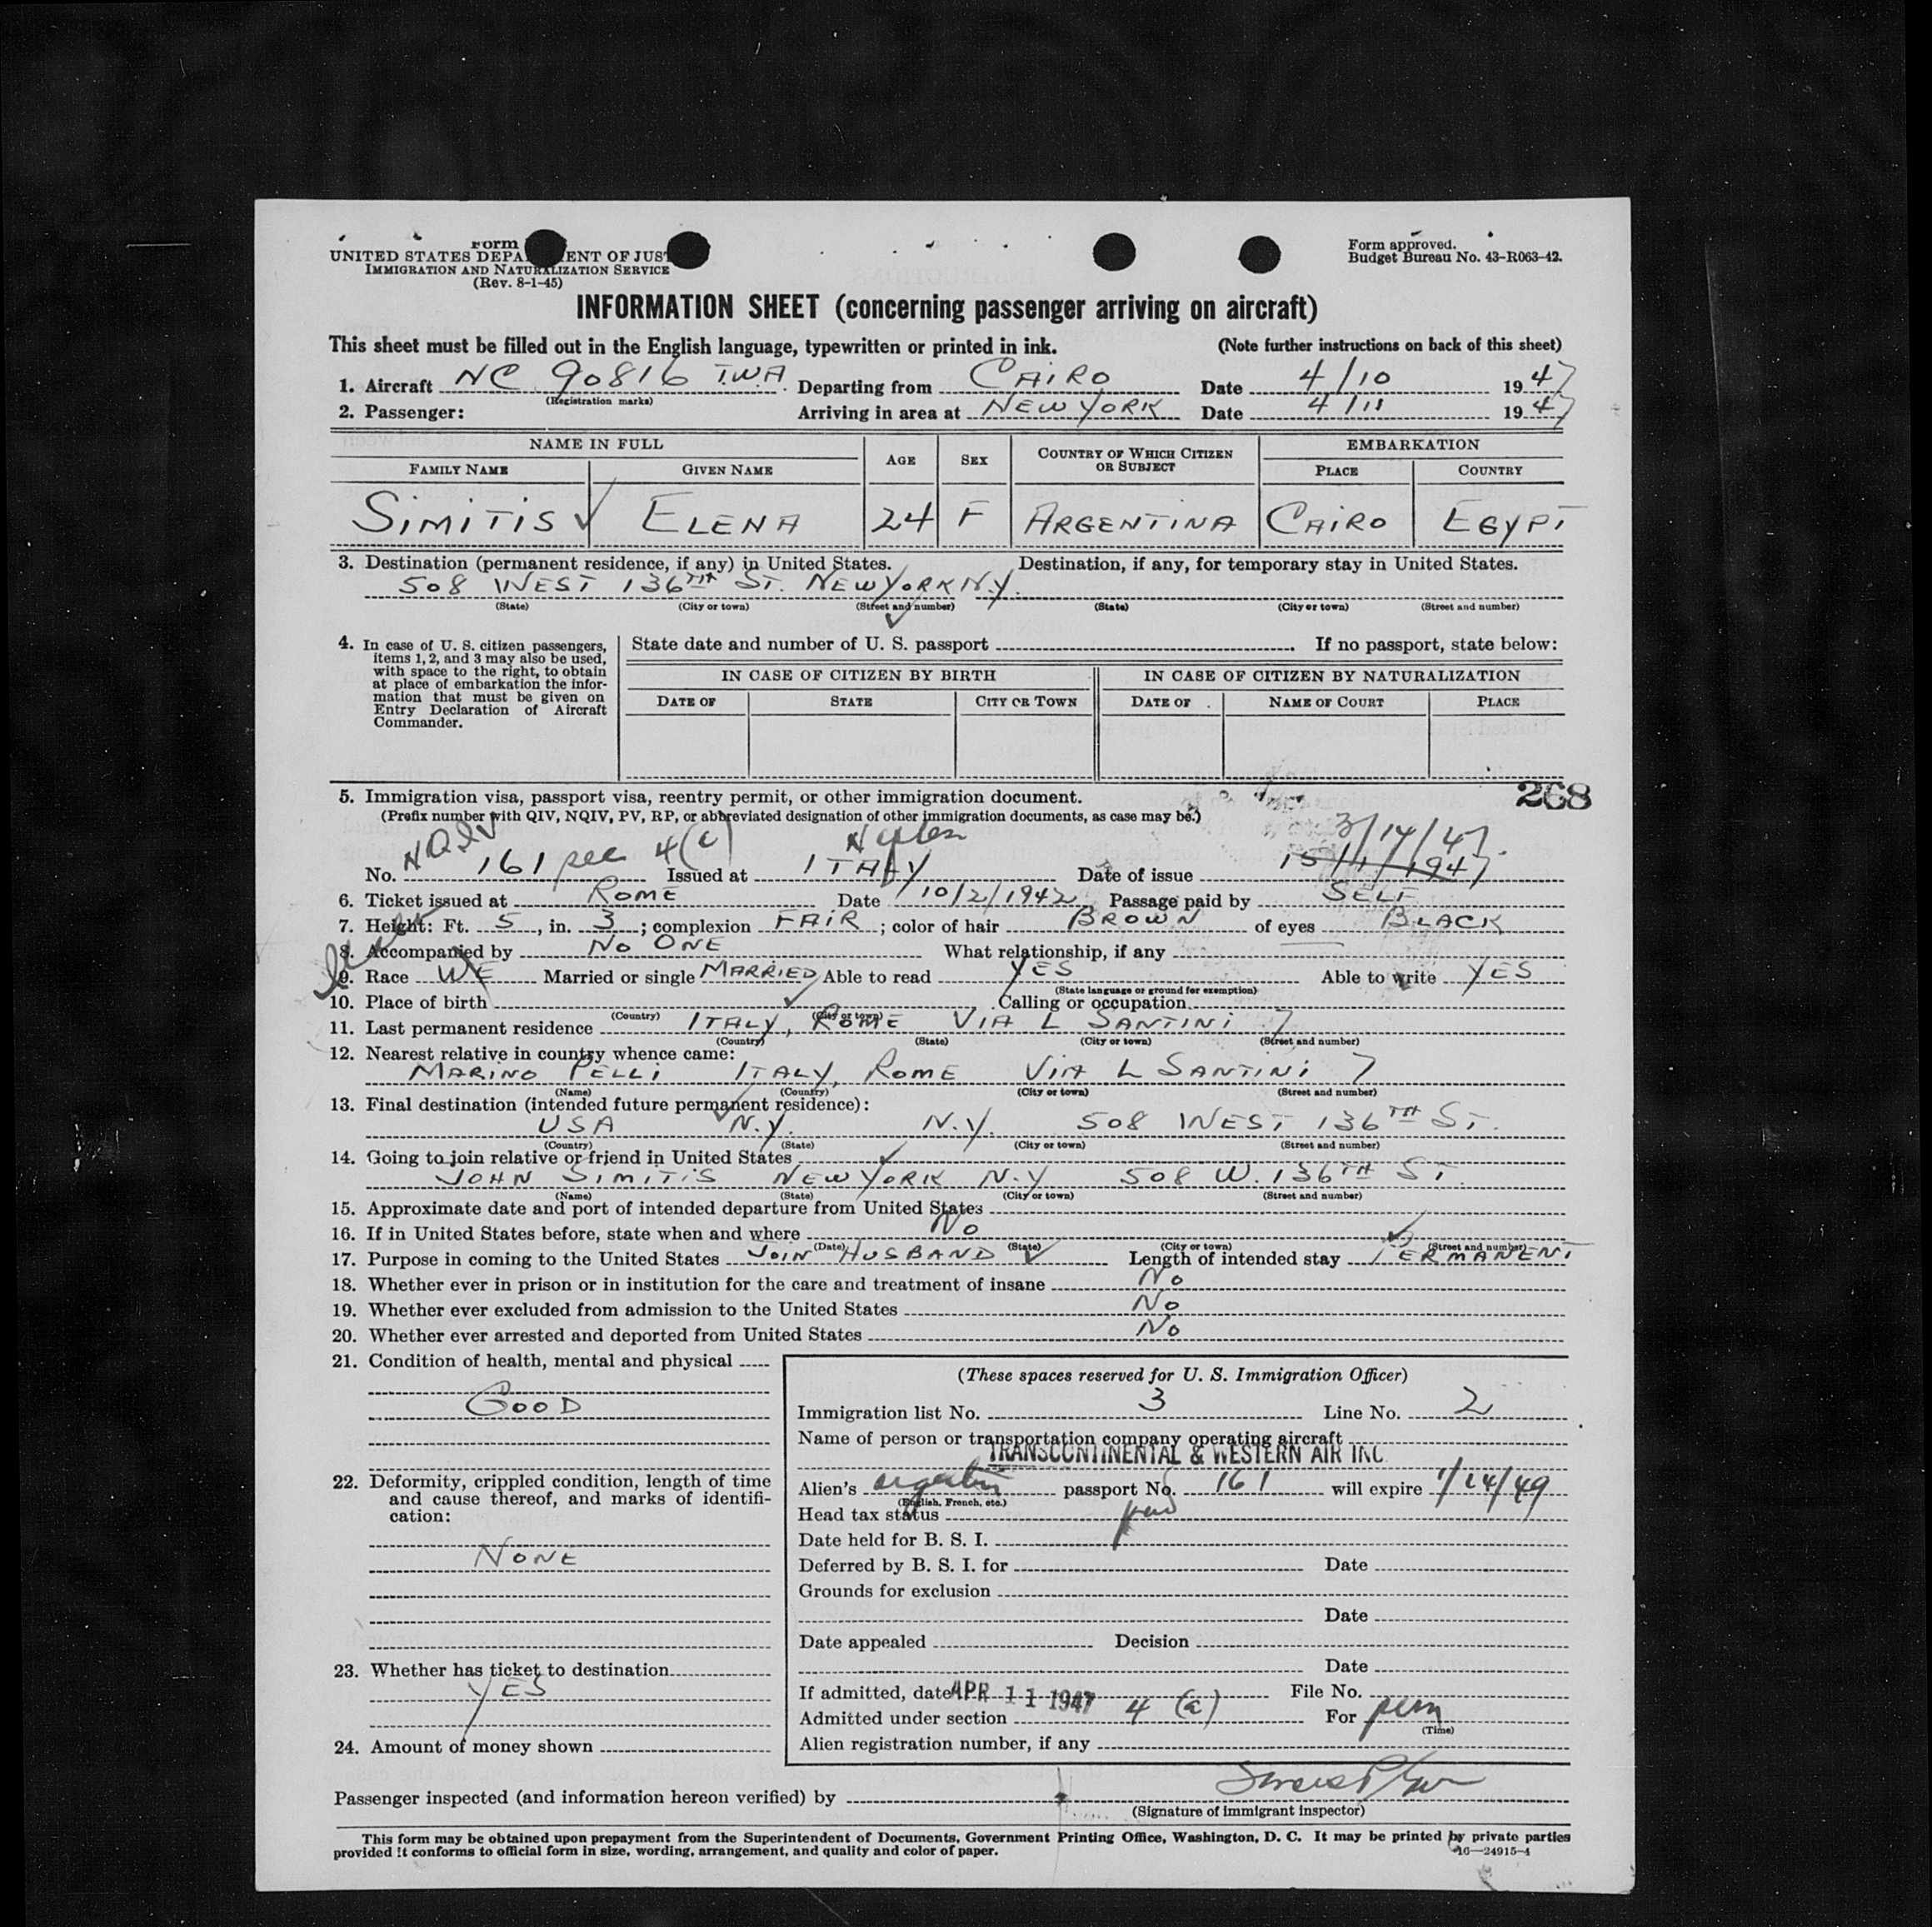 Form
UNITED STATES DEPA ENT OF JUST
IMMIGRATION AND NATURALIZATION SERVICE
(Rev. 8-1-45)
Form approved.
Budget Bureau No. 43-R063-42.
INFORMATION SHEET (concerning passenger arriving on aircraft)
This sheet must be filled out in the English language, typewritten or printed in ink. (Note further instructions on back of this sheet)
1. Aircraft NC 90816 T.W.A. Departing from CAIRO Date 4/10 1947
(Registration marks)
2. Passenger: Arriving in area at NEW YORK Date 4/11 1947
NAME IN FULL EMBARKATION
FAMILY NAME GIVEN NAME AGE SEX COUNTRY OF WHICH CITIZEN OR SUBJECT PLACE COUNTRY
SIMITIS ELENA 24 F ARGENTINA CAIRO EGYPT
3. Destination (permanent residence, if any) in United States. Destination, if any, for temporary stay in United States.
508 WEST 136TH ST. NEW YORK N.Y.
(State) (City or town) (Street and number) (State) (City or town) (Street and number)
4. In case of U. S. citizen passengers,
items 1, 2, and 3 may also be used,
with space to the right, to obtain
at place of embarkation the infor-
mation that must be given on
Entry Declaration of Aircraft
Commander.
State date and number of U. S. passport . If no passport, state below:
IN CASE OF CITIZEN BY BIRTH IN CASE OF CITIZEN BY NATURALIZATION
DATE OF STATE CITY OR TOWN DATE OF NAME OF COURT PLACE
268
5. Immigration visa, passport visa, reentry permit, or other immigration document.
(Prefix number with QIV, NQIV, PV, RP, or abbreviated designation of other immigration documents, as case may be.)
NQIV 4(c) Naples 3/14/47
No. 161 sec Issued at ITALY Date of issue 15/1/1947
6. Ticket issued at ROME Date 10/2/1942 Passage paid by SELF
7. Height: Ft. 5, in. 3; complexion FAIR; color of hair BROWN of eyes BLACK
8. Accompanied by NO ONE What relationship, if any
9. Race WE Married or single MARRIED Able to read YES Able to write YES
(State language or ground for exemption)
10. Place of birth Calling or occupation
(Country) (City or town)
11. Last permanent residence ITALY, ROME VIA L SANTINI 7
(Country) (State) (City or town) (Street and number)
12. Nearest relative in country whence came:
MARINO PELLI ITALY, ROME VIA L SANTINI 7
(Name) (Country) (City or town) (Street and number)
13. Final destination (intended future permanent residence):
USA N.Y. N.Y. 508 WEST 136TH ST.
(Country) (State) (City or town) (Street and number)
14. Going to join relative or friend in United States
JOHN SIMITIS NEW YORK N.Y 508 W. 136TH ST.
(Name) (State) (City or town) (Street and number)
15. Approximate date and port of intended departure from United States
16. If in United States before, state when and where NO
(Date) (State) (City or town) (Street and number)
17. Purpose in coming to the United States JOIN HUSBAND Length of intended stay PERMANENT
18. Whether ever in prison or in institution for the care and treatment of insane NO
19. Whether ever excluded from admission to the United States NO
20. Whether ever arrested and deported from United States NO
21. Condition of health, mental and physical
GOOD
22. Deformity, crippled condition, length of time
and cause thereof, and marks of identifi-
cation:
NONE
23. Whether has ticket to destination
YES
24. Amount of money shown
(These spaces reserved for U. S. Immigration Officer)
Immigration list No. 3 Line No. 2
Name of person or transportation company operating aircraft
TRANSCONTINENTAL & WESTERN AIR INC
Alien's argentine passport No. 161 will expire 1/14/49
(English, French, etc.)
Head tax status
Date held for B. S. I.
Deferred by B. S. I. for Date
Grounds for exclusion
Date
Date appealed Decision
Date
If admitted, date APR 11 1947 File No.
Admitted under section 4 (a) For perm
(Time)
Alien registration number, if any
Passenger inspected (and information hereon verified) by
(Signature of immigrant inspector)
This form may be obtained upon prepayment from the Superintendent of Documents, Government Printing Office, Washington, D. C. It may be printed by private parties
provided it conforms to official form in size, wording, arrangement, and quality and color of paper. 16—24915-4